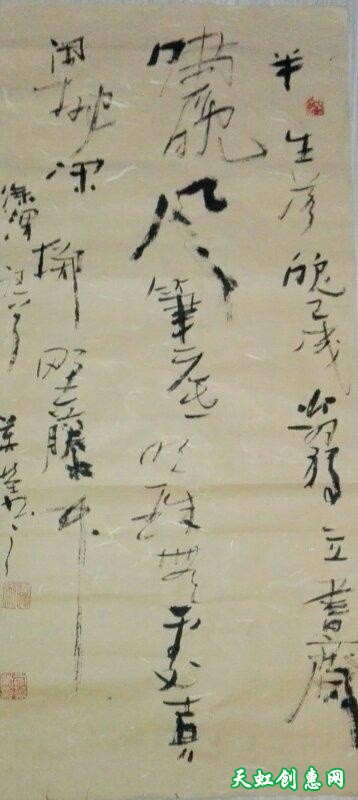 半生落魄已成翁獨立書齋
嘯晚風筆底明珠無處賣
閑拋閑擲野藤中
徐渭
天虹创惠网